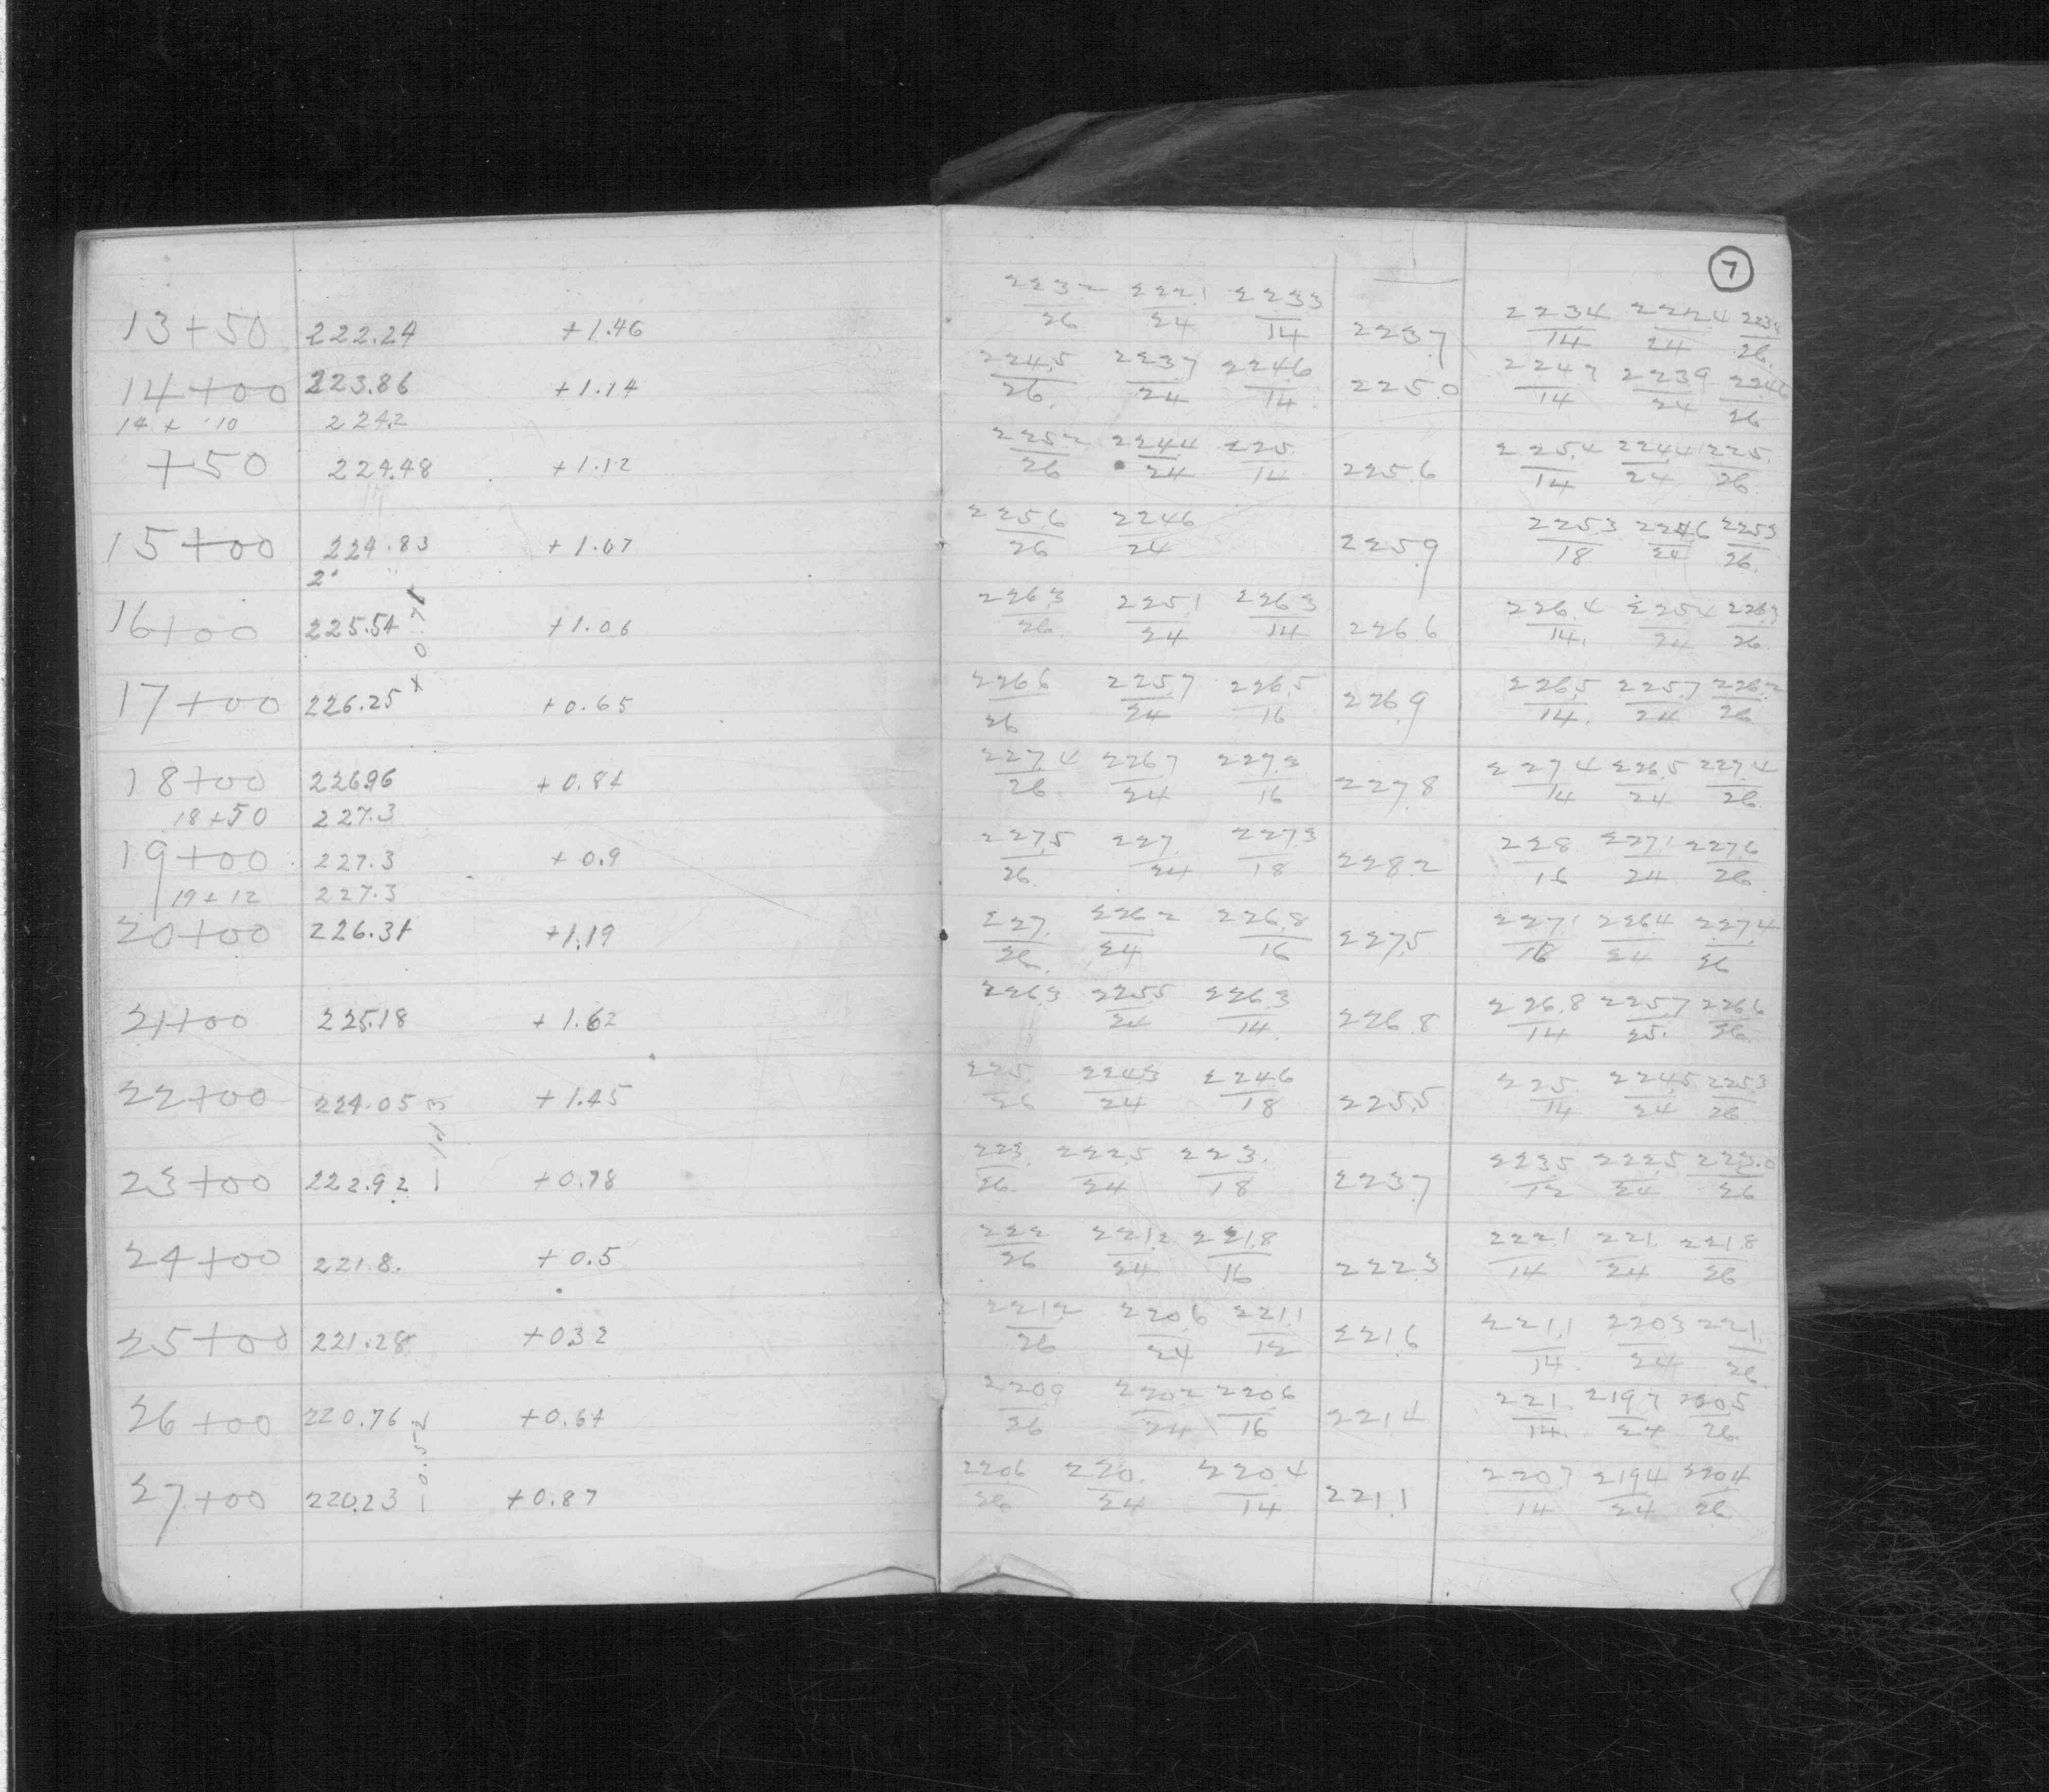 7
13+50 222.24 +1.46 223.2/26 222.1/24 223.3/14 223.7 223.4/14 222.4/24 223.4/26
14+00 223.86 +1.14 224.5/26 223.7/24 224.6/14 225.0 224.7/14 223.9/24
14+10 224.2
+50 224.48 +1.12 225.2/26 224.4/24 225./14 225.6 225.4/14 224.4/24 225./26
15+00 224.83 +1.07 225.6/26 224.6/24 225.9 225.3/18 224.6/24 225.3/26
2
16+00 225.54 +1.06 226.3/26 225.1/24 226.3/14 226.6 226.4/14 225.4/24 226.3/26
+ 0.71
17+00 226.25 +0.65 226.6/26 225.7/24 226.5/16 226.9 226.5/14 225.7/24 226.2/26
18+00 226.96 +0.84 227.4/26 226.7/24 227.2/16 227.8 227.4/14 226.5/24 227.4/26
18+50 227.3
19+00 227.3 +0.9 227.5/26 227./24 227.3/18 228.2 228/16 227.1/24 227.6/26
19+12 227.3
20+00 226.31 +1.19 227./26 226.2/24 226.8/16 227.5 227.1/16 226.4/24 227.4/26
21+00 225.18 +1.62 226.3 225.5/24 226.3/14 226.8 226.8/14 225.7/25. 226.6/26
22+00 224.05 +1.45 225./26 224.3/24 224.6/18 225.5 225/14 224.5/24 225.3/26
- 1.13
23+00 222.92 +0.78 223./26 222.5/24 223./18 223.7 223.5/12 222.5/24 223.0/26
24+00 221.8. +0.5 222/26 221.2/24 221.8/16 222.3 222.1/14 221./24 221.8/26
25+00 221.28 +0.32 221.2/26 220.6/24 221.1/12 221.6 221.1/14 220.3/24 221./26
26+00 220.76 +0.64 220.9/26 220.2/24 220.6/16 221.4 221./14 219.7/24 220.5/26
- 0.52
27+00 220.23 +0.87 220.6/26 220./24 220.4/14 221.1 220.7/14 219.4/24 220.4/26